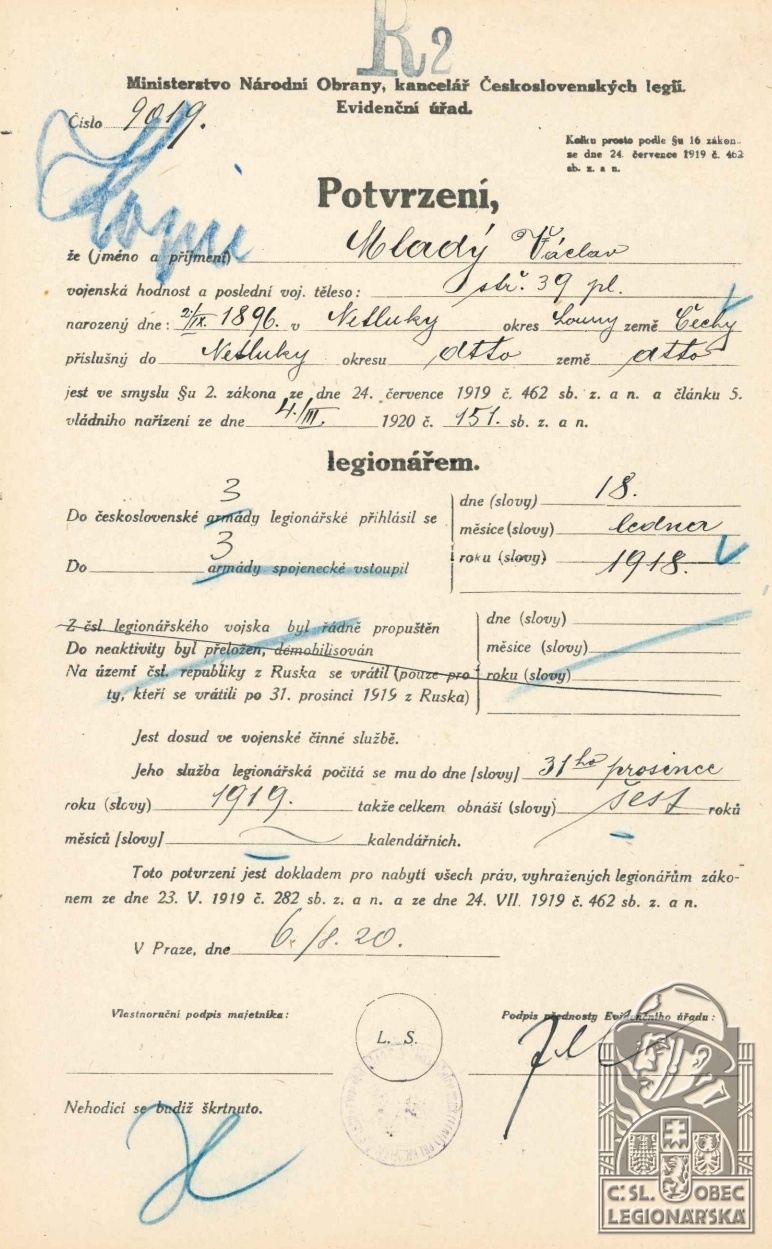 R2
Ministerstvo Národní Obrany, kancelář Československých legií.
Evidenční úřad.
Číslo 9019.
Kolku prosto podle §u 16 zákona
ze dne 24. července 1919 č. 462
sb. z. a n.
Potvrzení,
že (jméno a příjmení) Mladý Václav
vojenská hodnost a poslední voj. těleso: stř. 39 pl.
narozený dne: 2./IX. 1896. v Netluky okres Louny země Čechy
příslušný do Netluky okresu dtto země dtto
jest ve smyslu §u 2. zákona ze dne 24. července 1919 č. 462 sb. z. a n. a článku 5.
vládního nařízení ze dne 4./III. 1920 č. 151. sb. z a n.
legionářem.
3
Do československé armády legionářské přihlásil se
3
Do armády spojenecké vstoupil
dne (slovy) 18.
měsíce (slovy) ledna
roku (slovy) 1918.
Z čsl legionářského vojska byl řádně propuštěn
Do neaktivity byl přeložen, demobilisován
Na území čsl. republiky z Ruska se vrátil (pouze pro
ty, kteří se vrátili po 31. prosinci 1919 z Ruska)
dne (slovy)
měsíce (slovy)
roku (slovy)
Jest dosud ve vojenské činné službě.
Jeho služba legionářská počítá se mu do dne [slovy] 31ho prosince
roku (slovy) 1919. takže celkem obnáší (slovy) šest roků
měsíců [slovy] kalendářních.
Toto potvrzení jest dokladem pro nabytí všech práv, vyhražených legionářům záko-
nem ze dne 23. V. 1919 č. 282 sb. z. a n. a ze dne 24. VII. 1919 č. 462 sb. z. a n.
V Praze, dne 6./8. 20.
Vlastnoruční podpis majetníka:
L. S.
Podpis přednosty Evidenčního úřadu:
Nehodící se budiž škrtnuto.
Č.SL. OBEC
LEGIONÁŘSKÁ